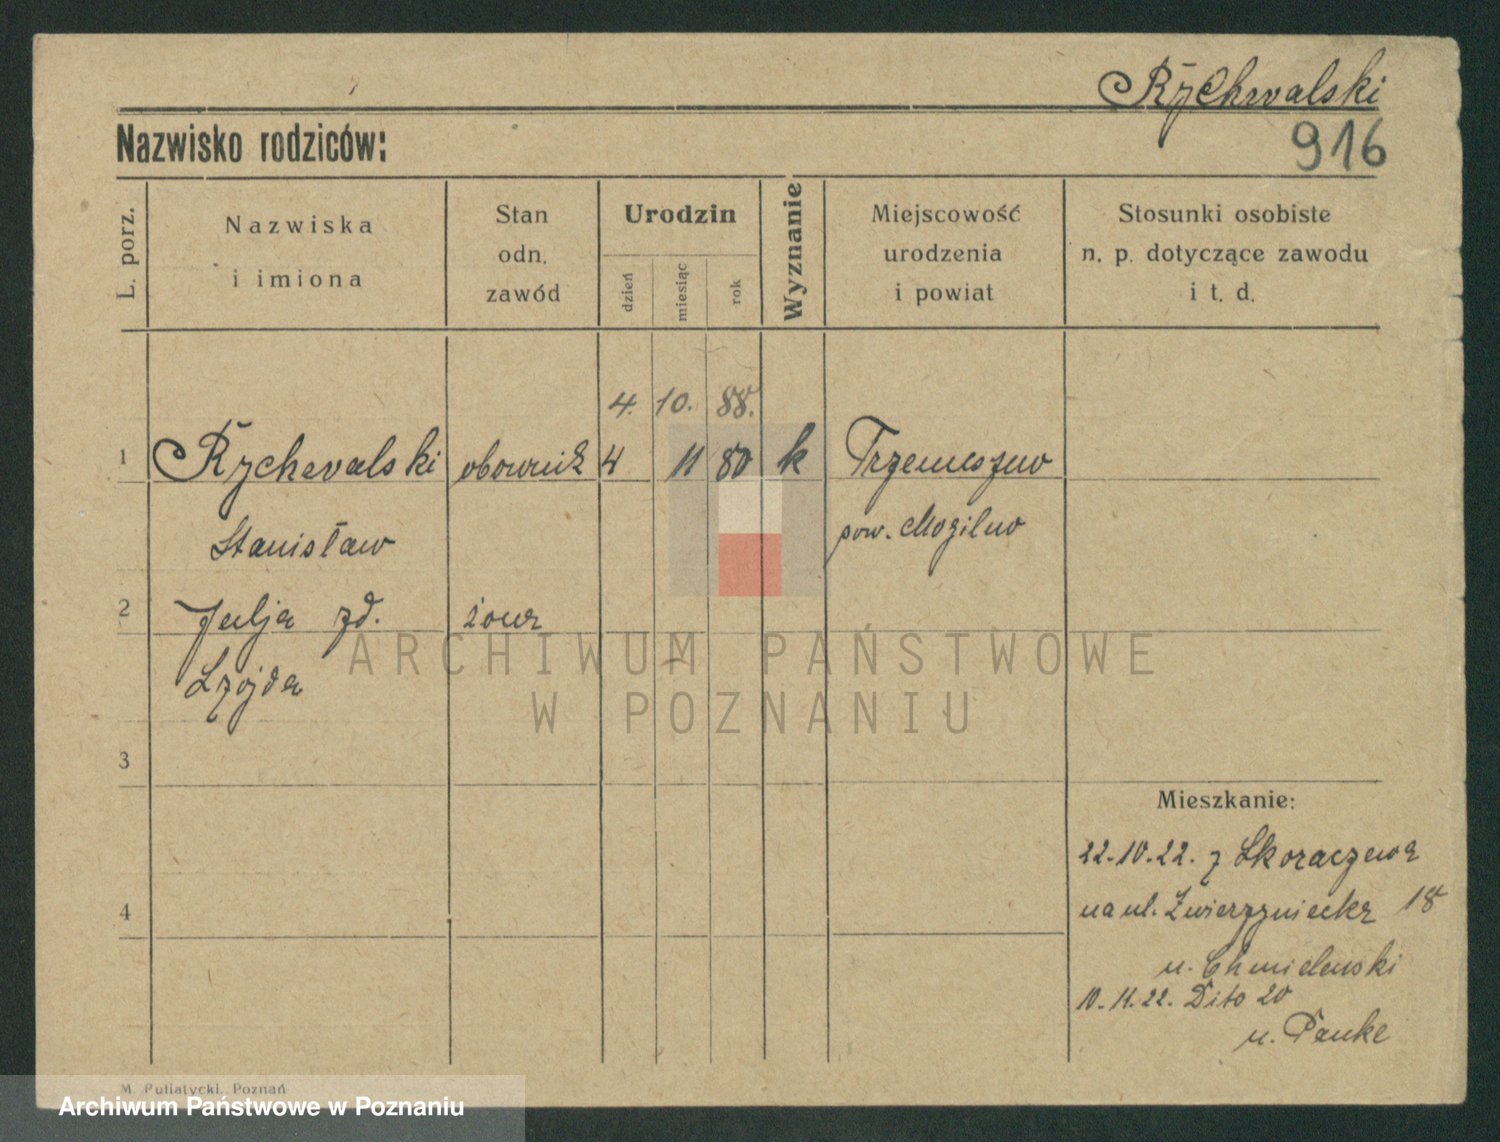 Rychwalski
Nazwisko rodziców:
916
L. porz.
Nazwiska
i imiona
Stan
odn.
zawód
Urodzin
dzień
miesiąc
rok
Wyznanie
Miejscowość
urodzenia
i powiat
Stosunki osobiste
n. p. dotyczące zawodu
i t. d.
4. 10. 88.
1 Rychwalski 4 11 80 k Trzemeszno
Stanisław pow. Mogilno
2 Julja zd. żona
3
Mieszkanie:
22.10.22. z Skoraczewa
4
na ul. Zwierzyniecka 18
u. Chmielewski
10.11.22. Dito 20
u. Panke
M. Putiatycki, Poznań
ARCHIWUM PAŃSTWOWE
W POZNANIU
Archiwum Państwowe w Poznaniu